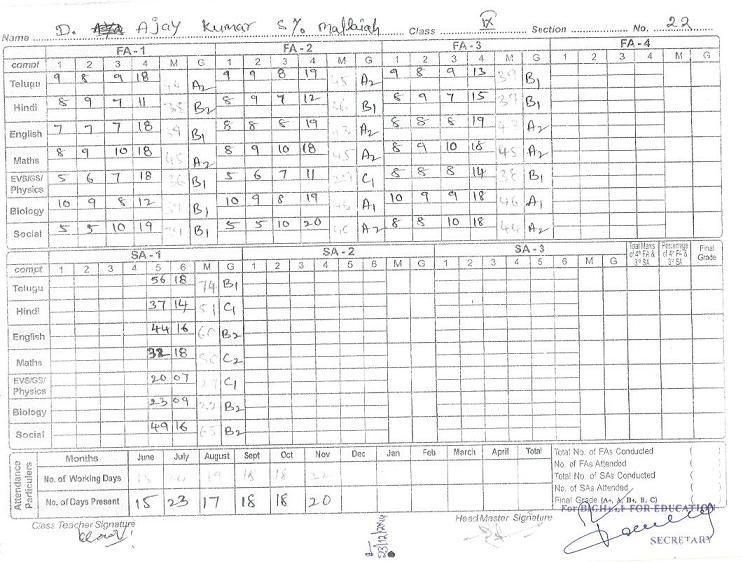 Name D. Ajay Kumar S/o Mallaiah Class IX Section No. 22
FA - 1 FA - 2 FA - 3 FA - 4
compt 1 2 3 4 M G 1 2 3 4 M G 1 2 3 4 M G 1 2 3 4 M G
Telugu 9 8 9 18 44 A2 9 9 8 19 45 A2 9 8 9 13 39 B1
Hindi 8 9 7 11 35 B2 8 9 7 12 36 B1 8 9 7 15 39 B1
English 7 7 7 18 39 B1 8 8 8 19 43 A2 8 8 8 19 43 A2
Maths 8 9 10 18 45 A2 8 9 10 18 45 A2 8 9 10 18 45 A2
EVS/GS/ Physics 5 6 7 18 36 B1 5 6 7 11 29 C1 8 8 8 14 38 B1
Biology 10 9 8 12 39 B1 10 9 8 19 46 A1 10 9 9 18 46 A1
Social 5 5 10 19 39 B1 5 5 10 20 40 A2 8 8 10 18 44 A2
SA - 1 SA - 2 SA - 3 Total Marks of 4* FA & 3* SA Percentage of 4* FA & 3* SA Final Grade
compt 1 2 3 4 5 6 M G 1 2 3 4 5 6 M G 1 2 3 4 5 6 M G
Telugu 56 18 74 B1
Hindi 37 14 51 C1
English 44 16 60 B2
Maths 18 C2
EVS/GS/ Physics 20 07 27 C1
Biology 23 09 32 B2
Social 49 16 65 B2
Attendance Particulers
Months June July August Sept Oct Nov Dec Jan Feb March April Total
No. of Working Days
No. of Days Present 15 23 17 18 18 20
Total No. of FAs Conducted (
No. of FAs Attended (
Total No. of SAs Conducted (
No. of SAs Attended (
Final Grade (A+, A, B+, B, C) (
Class Teacher Signature Head Master Signature
23/12/2014
FOR EDUCATION
SECRETARY